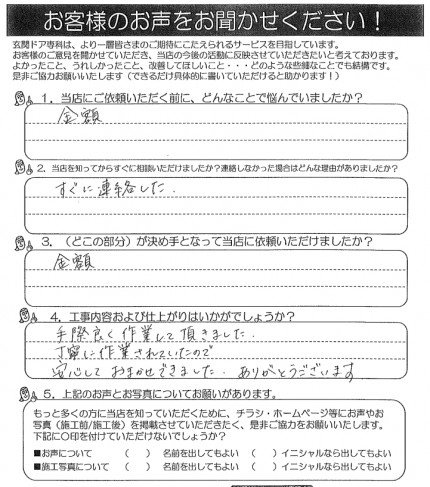 お客様のお声をお聞かせください！
玄関ドア専科は、より一層皆さまのご期待にこたえられるサービスを目指しています。
お客様のご意見を聞かせていただき、当店の今後の活動に反映させていただきたいと考えております。
よかったこと、うれしかったこと、改善してほしいこと・・・どのような些細なことでも結構です。
是非ご協力お願いいたします（できるだけ具体的に書いていただけると助かります！）
1．当店にご依頼いただく前に、どんなことで悩んでいましたか？
金額
2．当店を知ってからすぐに相談いただけましたか？連絡しなかった場合はどんな理由がありましたか？
すぐに連絡した．
3．（どこの部分）が決め手となって当店に依頼いただけましたか？
金額
4．工事内容および仕上がりはいかがでしょうか？
手際良く作業して頂きました．
丁寧に作業されていたので
安心しておまかせできました．ありがとうございます
5．上記のお声とお写真についてお願いがあります。
もっと多くの方に当店を知っていただくために、チラシ・ホームページ等にお声やお
写真（施工前/施工後）を掲載させていただきたく、是非ご協力をお願いいたします。
下記に〇印を付けていただけないでしょうか？
■お声について （ ） 名前を出してもよい （ ）イニシャルなら出してもよい
■施工写真について （ ） 名前を出してもよい （ ）イニシャルなら出してもよい